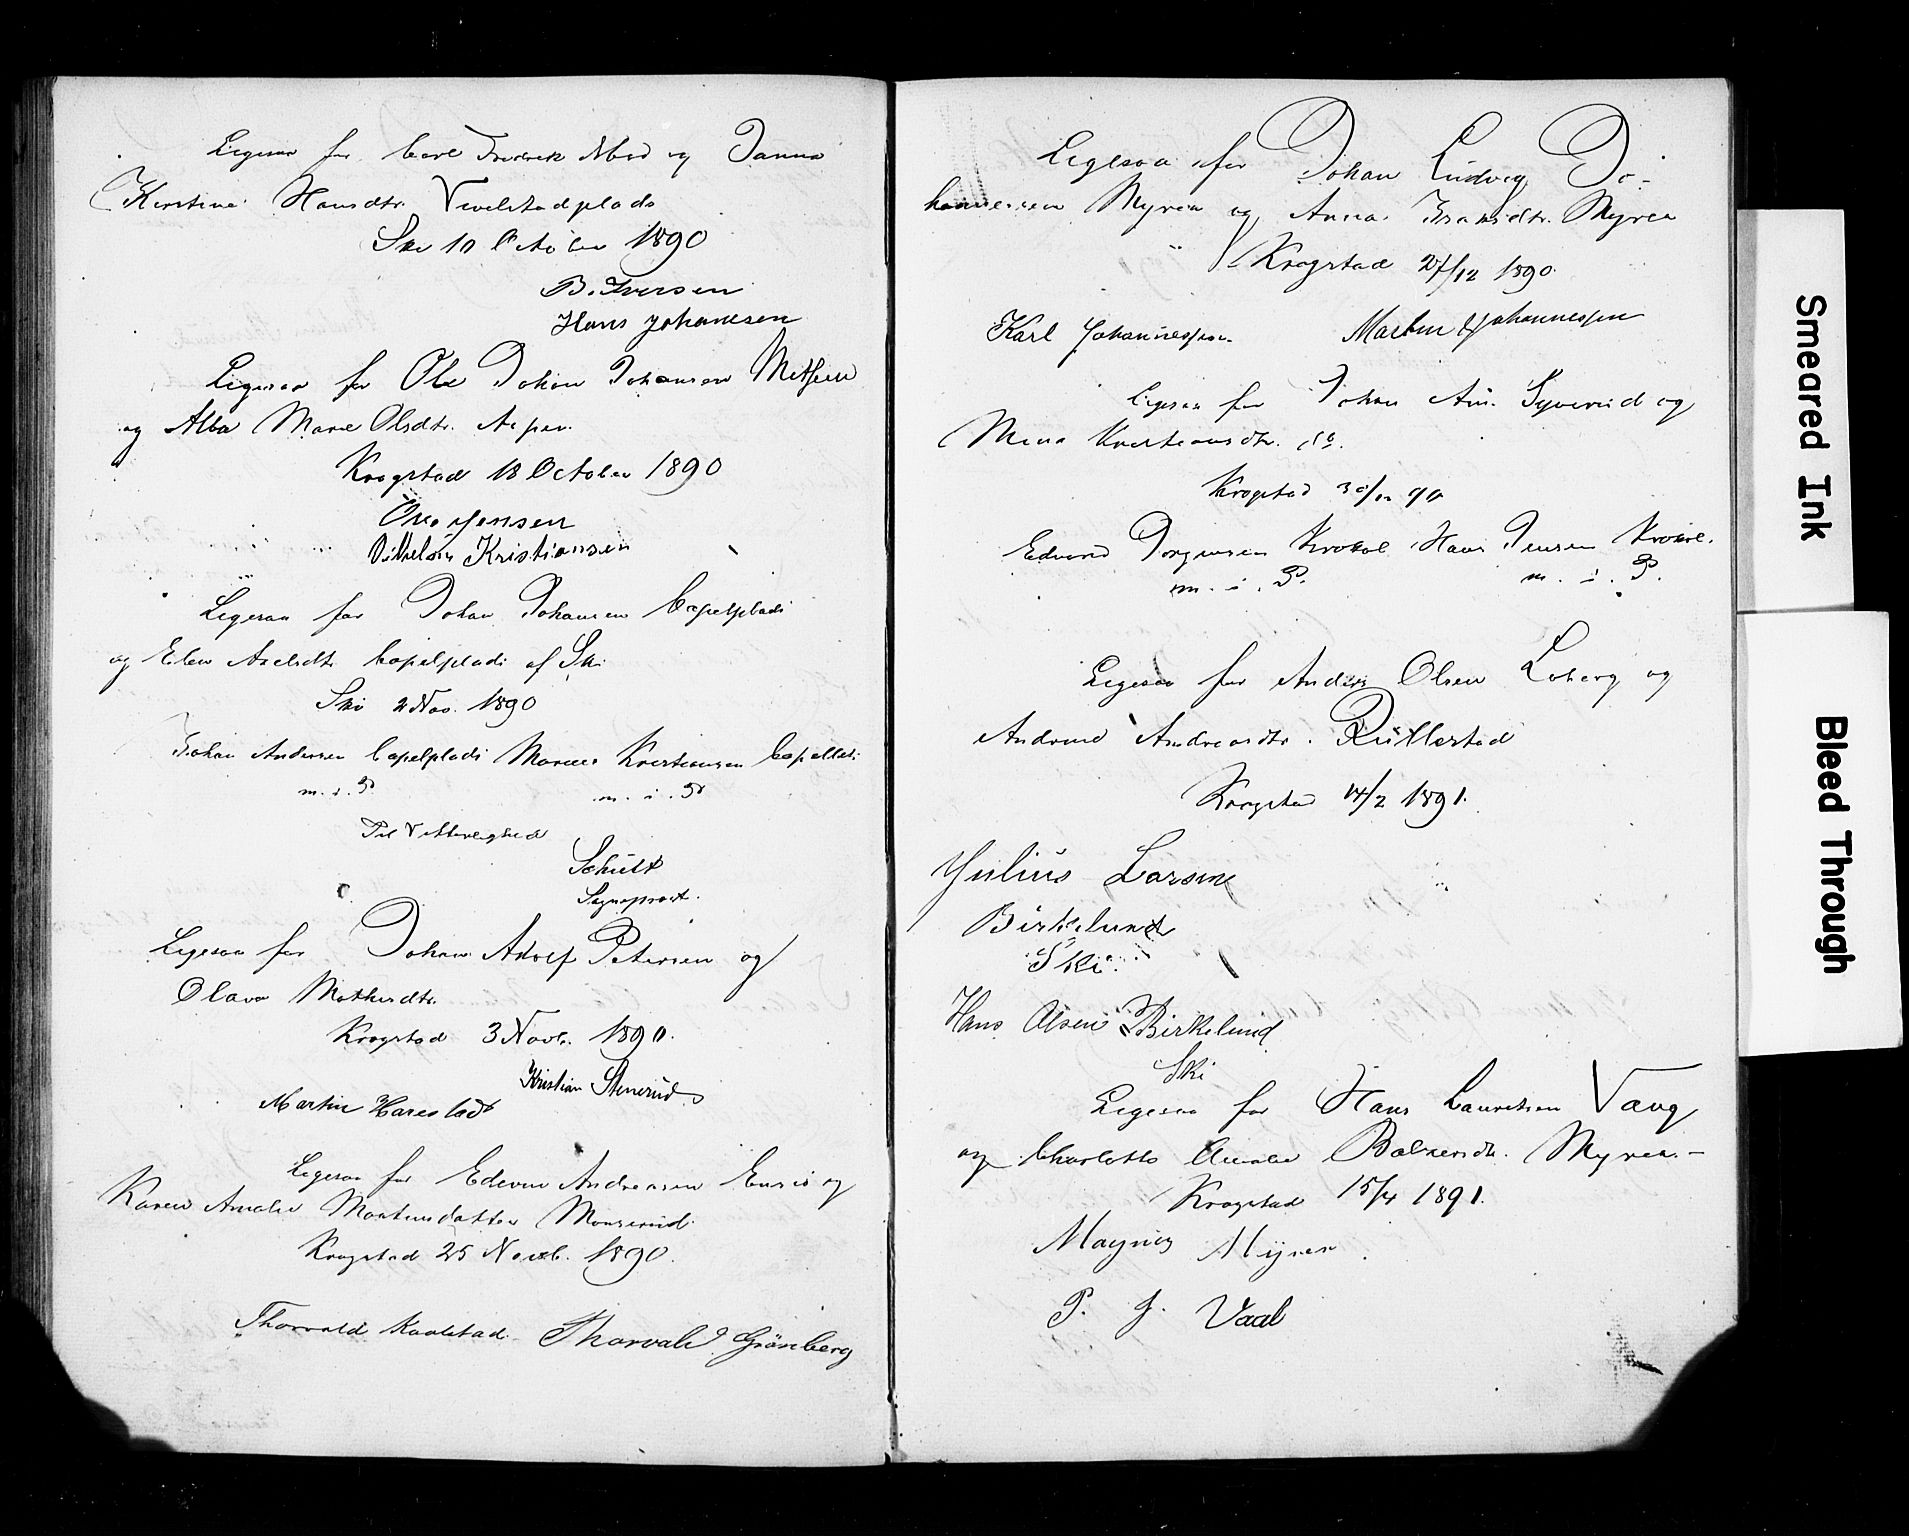 Ligesaa for Carl Fredrik Moo og Janna
Kirstine Hansdtr. Vevelstadplads
Ski 10 October 1890
B. Iversen
Hans Johansen
Ligesaa for Ole Johan Johansen
og Alba Marie Olsdtr.
Krogstad 18 October 1890
Jensen
Vilhelm Kristiansen
Ligesaa for Johan Johansen Capelplads
og Elen Axelsdtr. Capelplads af Ski
Ski 2 Nov. 1890
Johan Andersen Capelplads Marius Kristiansen
m. i. P. m. i. P
Til Vitterlighed
Schult
Sogneprest.
Ligesaa for Johan Adolf Petersen og
Olava Mathisdtr.
Krogstad 3 Novb. 1890.
Kristian Stenerud
Martin Harestad
Ligesaa for Edevin Andreasen og
Karen Amalie Martinsdatter Monserud.
Krogstad 25 Novb. 1890.
Thorvald Kaalstad. Thorvald Grönberg
Ligesaa for Johan Ludvig Jo-
hannessen Myren og Anna Myren
Krogstad 27/12 1890.
Karl Johannessen. Martin Johannessen
Ligesaa for Johan Ant. Syverud og
Mina Kristiansdtr. do.
Krogstad 30/12 90
Edvard Jørgensen Krokol Hans Jensen Krokol.
m. i. P. m. i. P.
Ligesaa for Anders Olsen Loberg og
Andrine Andreasdtr. Rullestad
Krogstad 14/2 1891.
Julius Larsen
Birkelund
Ski.
Hans Olsen Birkelund
Ski
Ligesaa for Hans Lauritsen Vang
og Charlotte Amalie Myren.-
Krogstad 15/4 1891.
Magnus Myren.
P. J. Vaal
Smeared Ink
Bleed Through